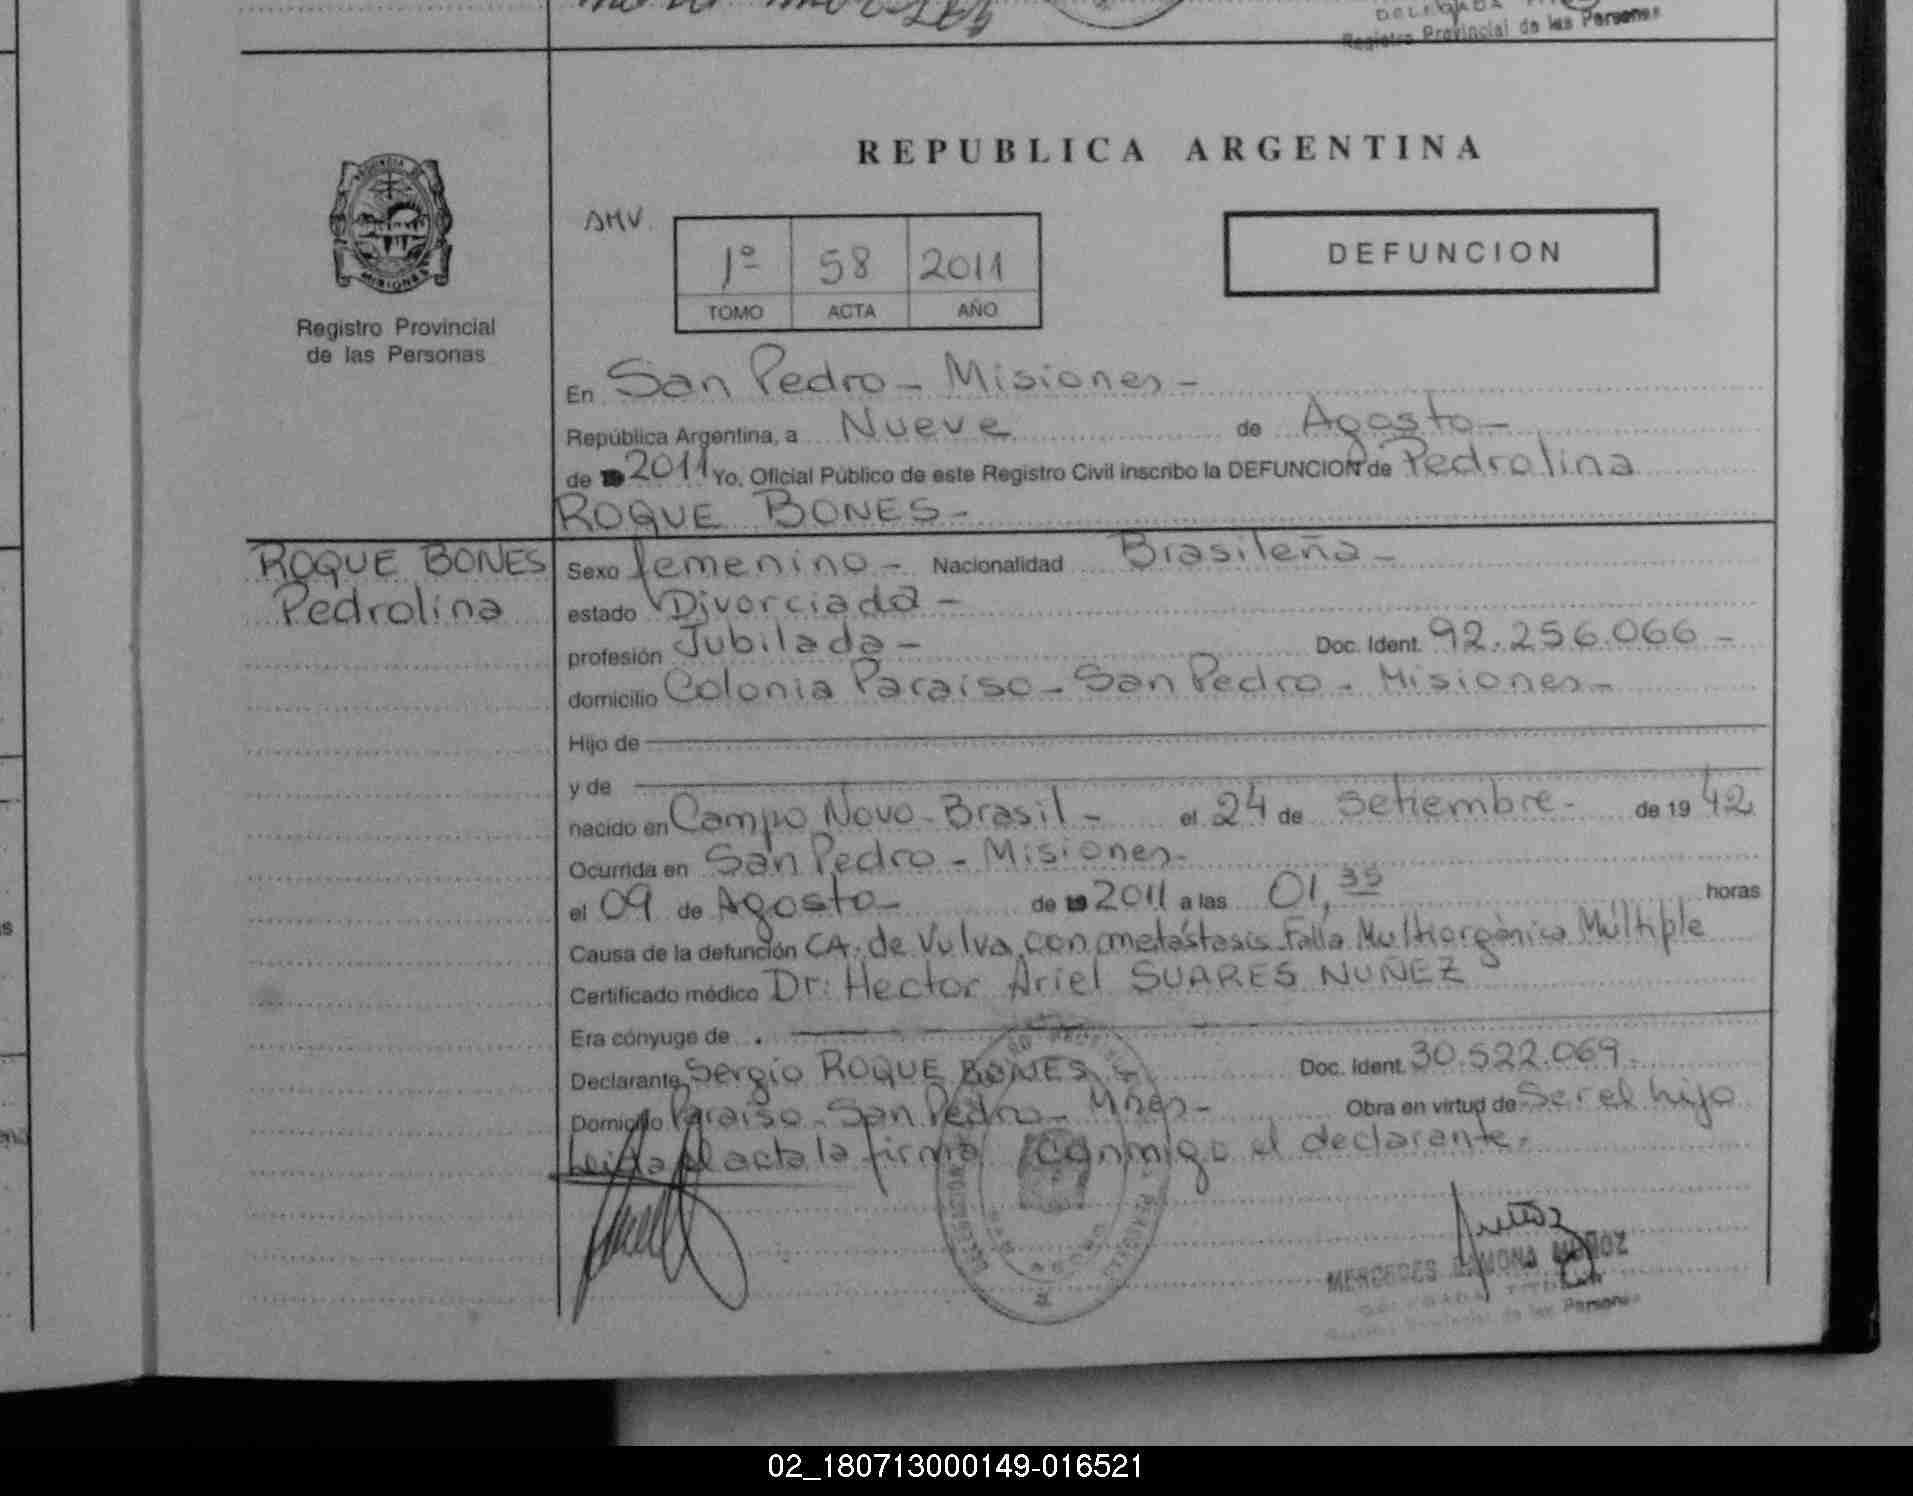 Registro Provincial de las Personas
REPUBLICA ARGENTINA
PROVINCIA DE
MISIONES
Registro Provincial
de las Personas
AMV.
1º 58 2011
TOMO ACTA AÑO
DEFUNCION
En San Pedro - Misiones -
República Argentina, a Nueve de Agosto -
de 2011 Yo, Oficial Público de este Registro Civil inscribo la DEFUNCION de Pedrolina
ROQUE BONES -
ROQUE BONES
Pedrolina
Sexo femenino - Nacionalidad Brasileña -
estado Divorciada -
profesión Jubilada - Doc. Ident. 92.256.066 -
domicilio Colonia Paraiso - San Pedro - Misiones -
Hijo de
y de
nacido en Campo Novo - Brasil - el 24 de Setiembre - de 19 42
Ocurrida en San Pedro - Misiones -
el 09 de Agosto - de 2011 a las 01,35 horas
Causa de la defunción CA. de Vulva con metástasis Falla Multiorgánica Múltiple
Certificado médico Dr: Hector Ariel SUARES NUÑEZ
Era cónyuge de
Declarante Sergio ROQUE BONES Doc. Ident. 30.522.069 -
Domicilio Paraiso - San Pedro - Mnes - Obra en virtud de Ser el hijo
Leida el acta la firma conmigo el declarante -
MERCEDES RAMONA MUÑOZ
DELEGADA TITULAR
Registro Provincial de las Personas
02_180713000149-016521